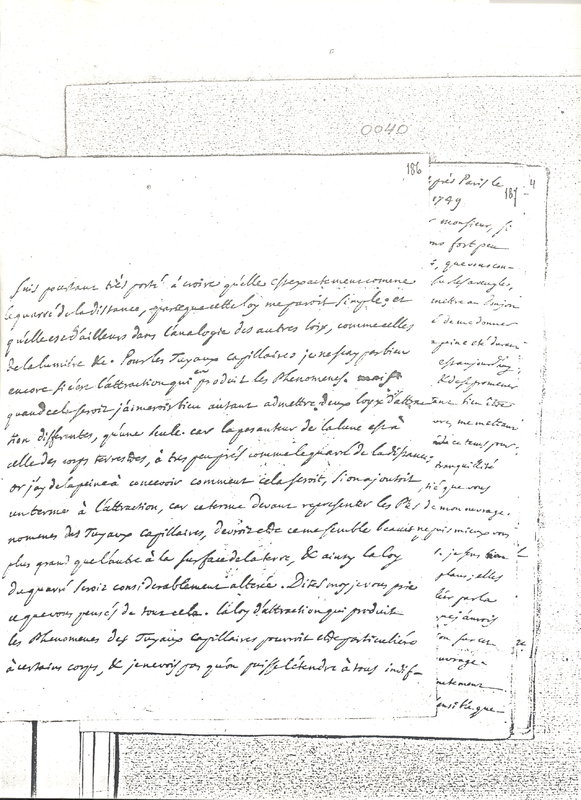 0040
186
suis pourtant très porté à croire qu'elle est exactement comme
le quarré de la distance, parceque cette loy me paroit simple, et
qu'elle est d'ailleurs dans l'analogie des autres loix, comme celles
de la lumiere &c. Pour les Tuyaux capillaires je ne sçay pas bien
encore si c'est l'attraction qui en produit les Phenomenes.
quand cela seroit j'aimerois bien autant admettre deux loyx d'attrac
tion differentes, qu'une seule. car la pesanteur de la lune est à
celle des corps terrestres, à tres peu près comme le quarré de la distance,
or j'ay de la peine à concevoir comment cela seroit, si on ajoutoit
un terme à l'attraction, car ce terme devant representer les Phé
nomenes des Tuyaux capillaires, devroit être ce me semble beaucoup
plus grand que l'autre à la surface de la terre, & ainsy la loy
du quarré seroit considerablement alterée. Dites moy je vous prie
ce que vous pensés de tout cela. la loy d'attraction qui produit
les Phenomenes des Tuyaux capillaires pourroit être particuliére
à certains corps, & je ne vois pas qu'on puisse l'étendre à tous indif-
187
4
près Paris le
1749
monsieur, si
mo fort peu
, que vous con-
les aveugles,
mettre au
à de me donner
a peine été
est aujourd'huy
& de se promener
bien être
me mettant
ce tems pour
tranquilité
tié que vous
de mon ouvrage.
ne puis mieux vous
. je suis
plans; elles
par la
j'aurois
on sur cet
ouvrage.
nettement
sensible que